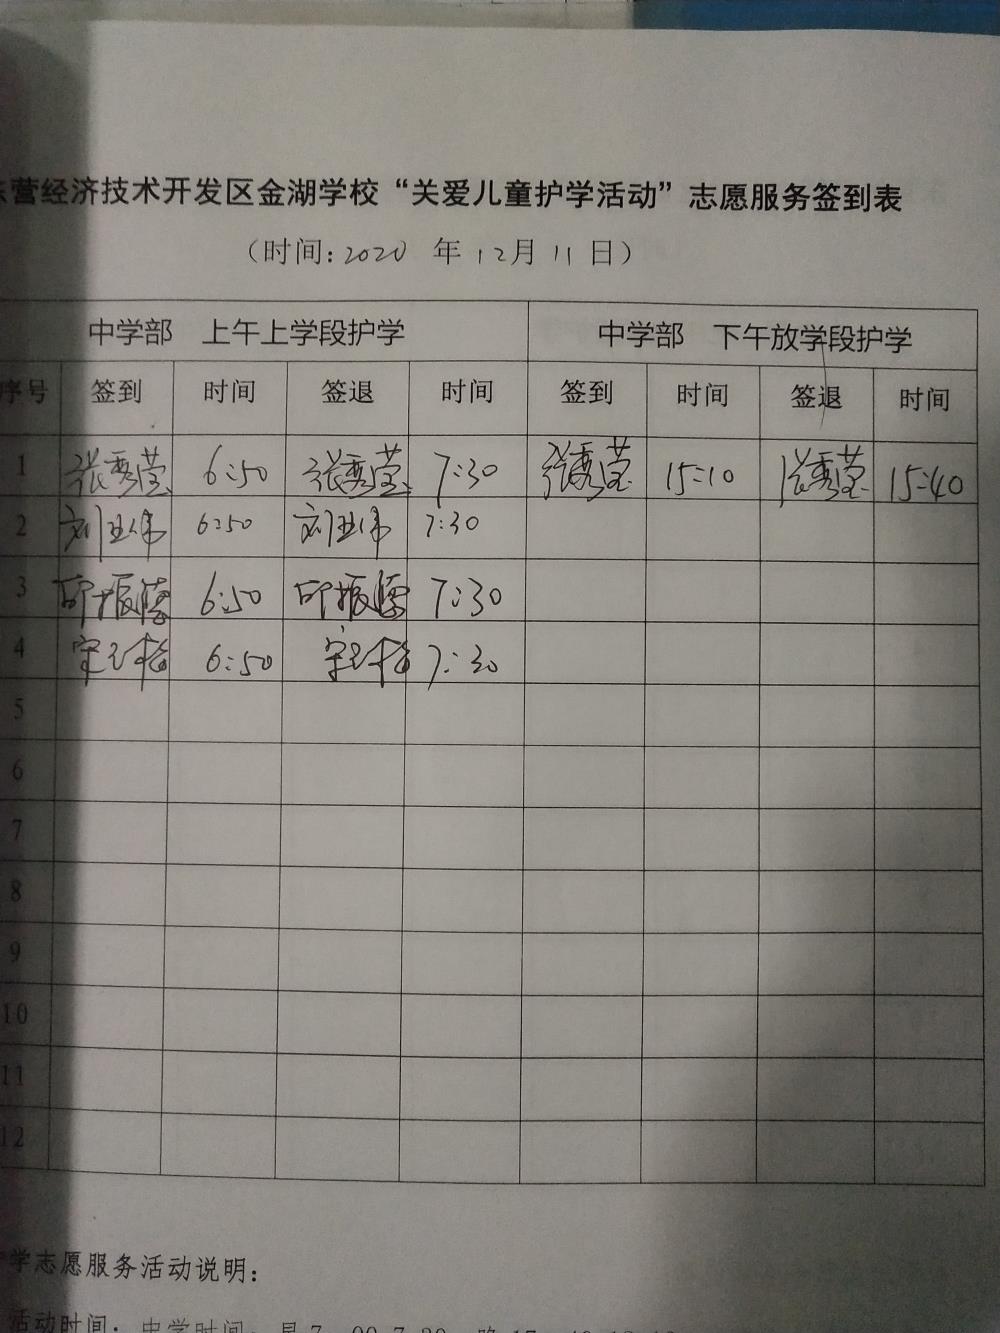 东营经济技术开发区金湖学校“关爱儿童护学活动”志愿服务签到表
（时间: 2020 年 12月 11 日）
中学部 上午上学段护学 中学部 下午放学段护学
序号 签到 时间 签退 时间 签到 时间 签退 时间
1 张秀莹 6:50 张秀莹 7:30 张秀莹 15:10 张秀莹 15:40
2 刘卫伟 6:50 刘卫伟 7:30
3 6:50 7:30
4 6:50 7:30
5
6
7
8
9
10
11
12
学志愿服务活动说明：
活动时间：中学时间：早7